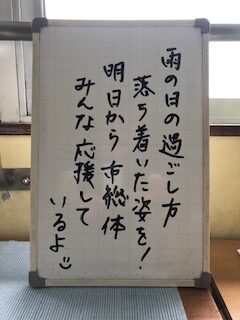 雨の日の過ごし方
落ち着いた姿を!
明日から市総体
みんな応援して
いるよ